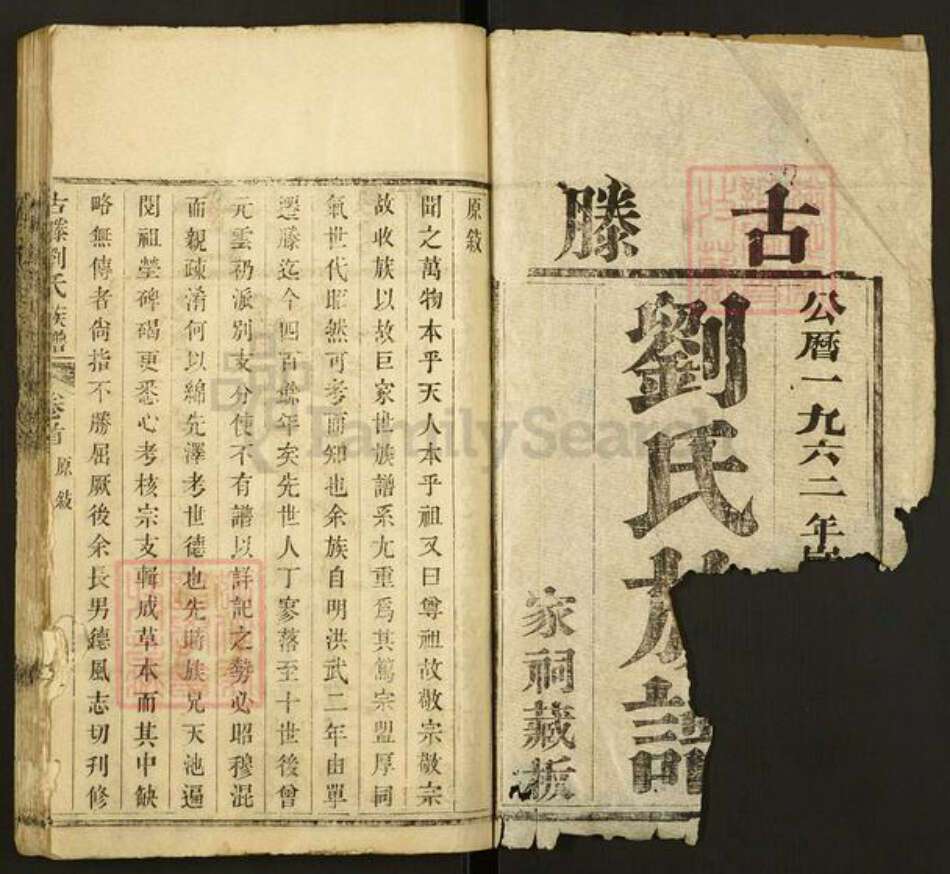 古滕
公曆一九六二年
劉氏族譜
家祠藏板
原敘
聞之萬物本乎天人本乎祖又曰尊祖故敬宗敬宗
故收族以故巨家世族譜系尤重爲其篤宗盟厚同
氣世代昭然可考而知也余族自明洪武二年由單
遷滕迄今四百餘年矣先世人丁寥落至十世後曾
元雲礽派別支分使不有譜以詳記之勢必昭穆混
而親疎淆何以綿先澤考世德也先時族兄天池遍
閱祖塋碑碣更悉心考核宗支輯成草本而其中缺
略無傳者尙指不勝屈厥後余長男德風志切刊修
古滕劉氏族譜 卷首 原敘
FamilySearch